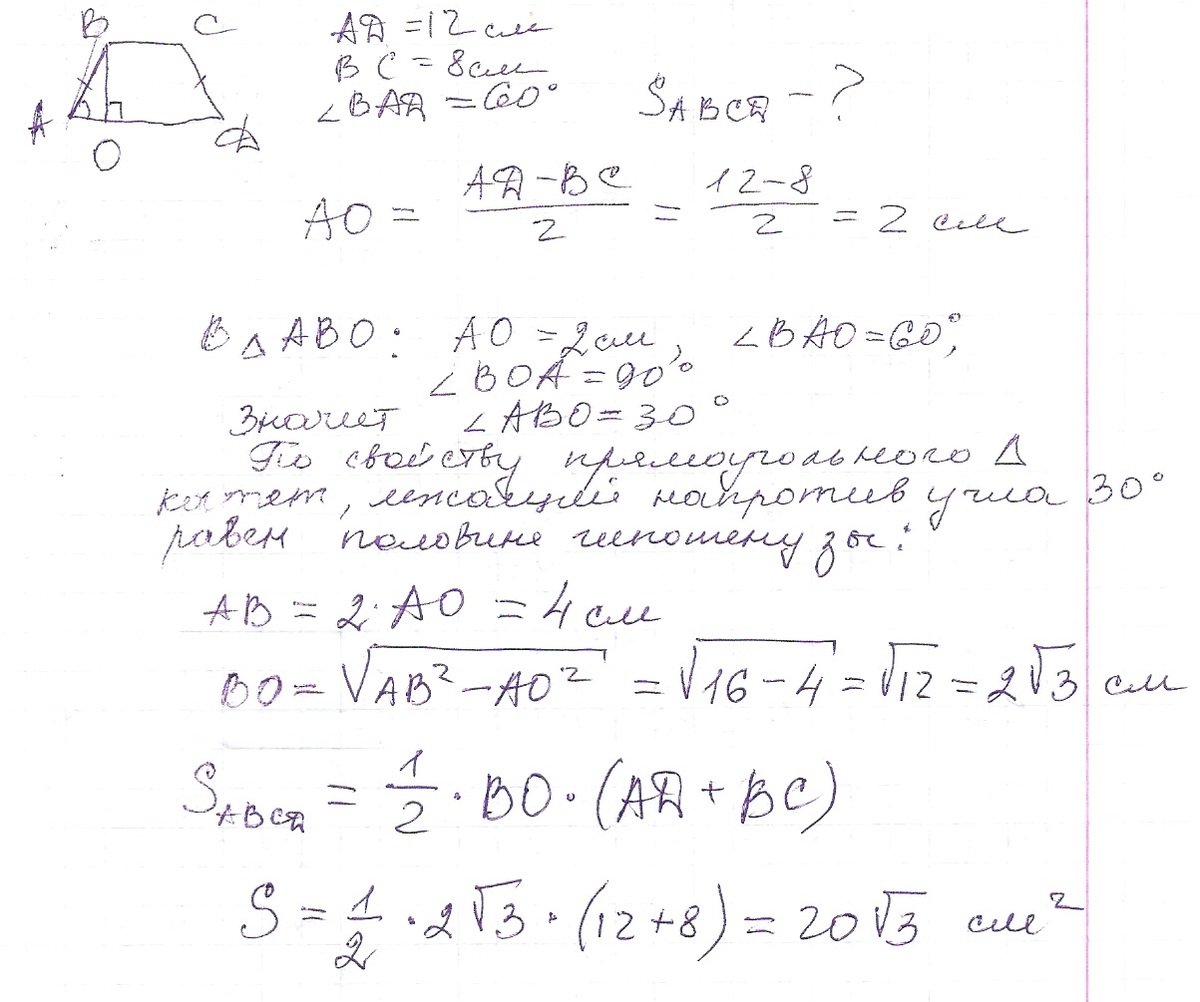 B C
A D
O
AD = 12 см
BC = 8 см
∠BAD = 60°
S_ABCD - ?
AO = (AD - BC)/2 = (12 - 8)/2 = 2 см
В △ ABO: AO = 2 см, ∠BAO = 60°,
∠BOA = 90°
Значит ∠ABO = 30°
По свойству прямоугольного △
катет, лежащий напротив угла 30°
равен половине гипотенузы:
AB = 2 · AO = 4 см
BO = √(AB² - AO²) = √(16 - 4) = √12 = 2√3 см
S_ABCD = 1/2 · BO · (AD + BC)
S = 1/2 · 2√3 · (12 + 8) = 20√3 см²